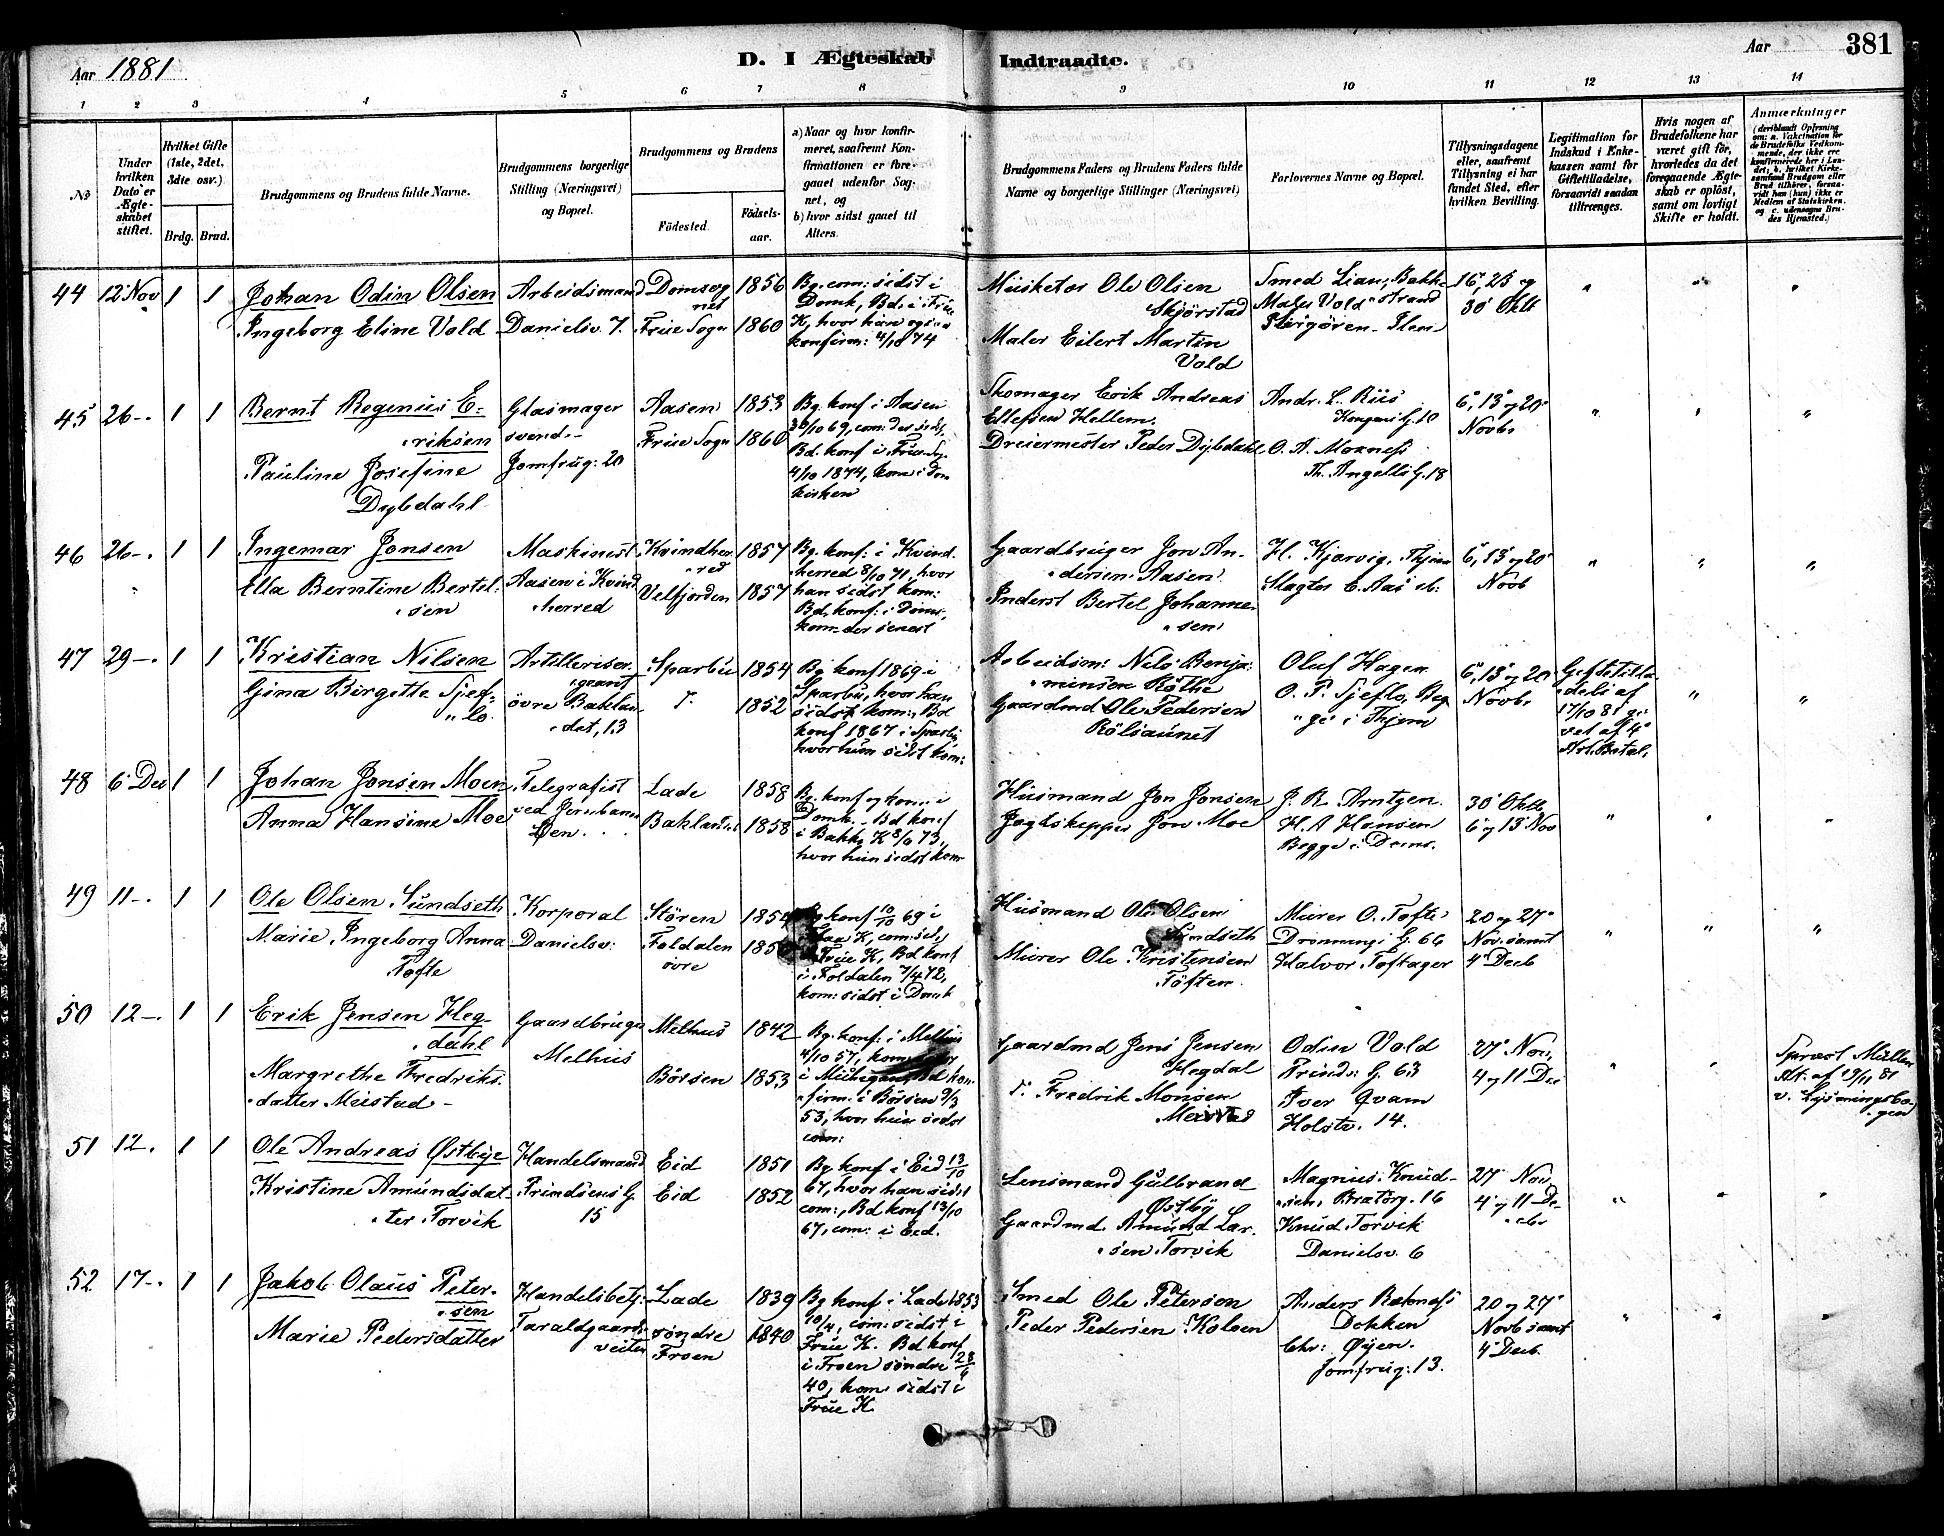 Aar 1881
D. I Ægteskab Indtraadte.
Aar 381
1 2 3 4 5 6 7 8 9 10 11 12 13 14
No
Under hvilken Dato er Ægteskabet stiftet.
Hvilket Gifte (1ste, 2det, 3die osv.)
Brdg. Brud.
Brudgommens og Brudens fulde Navne.
Brudgommens borgerlige Stilling (Næringsvei) og Bopæl.
Brudgommens og Brudens
Fødested.
Fødselsaar.
a) Naar og hvor konfirmeret, saafremt Konfirmationen er foregaaet udenfor Sognet, og
b) hvor sidst gaaet til Alters.
Brudgommens Faders og Brudens Faders fulde Navne og borgerlige Stillinger (Næringsvei)
Forlovernes Navne og Bopæl.
Tillysningsdagene eller, saafremt Tillysning ei har fundet Sted, efter hvilken Bevilling.
Legitimation for Indskud i Enkekassen samt for Giftetilladelse, forsaavidt saadan tiltrænges.
Hvis nogen af Brudefolkene har været gift før, hvorledes da det foregaaende Ægteskab er opløst, samt om lovligt Skifte er holdt.
Anmærkninger (deriblandt Oplysning om: a. Vakcination for de Brudefolks Vedkommende, der ikke ere konfirmerede her i Landet; b. hvilket Kirkesamfund Brudgom eller Brud tilhører, forsaavidt han (hun) ikke er Medlem af Statskirken, og c. udensogns Brudes Hjemsted.)
44 12 Nov 1 1
Johan Odin Olsen
Ingeborg Eline Vold
Arbeidsmand
Danielsv. 7.
Domsognet 1856
Frue Sogn 1860
Bg. com: sidst i
Domk, Bd. i Frue
K, hvor hun ogsaa
konfirm: 4/10 74
Musketer Ole Olsen
Skjørstad
Maler Eilert Martin
Vold
Smed Lian, Bakke
Maler Vold strand
16', 23 og
30' Oktb
45 26-. 1 1
Bernt Regenius E-
riksen
Pauline Josefine
Dybdahl
Glasmager
svend.-
Jomfrug: 20
Aasen 1853
Frue Sogn 1860
Bg. konf i Aasen
3/10 69, com: der sidst,
Bd. konf i Frue Sg.
4/10 1874, kom i Dom
kirken
Skomager Erik Andreas
Ellefsen Hellem.
Dreiermester Peder Dybdahl
Andr. L. Riis
Kongens G. 10
O. A. Moeness
Th. Angells G. 18
6', 13' og 20'
Novbr
46 26-. 1 1
Ingemar Jonsen
Ella Berntine Bertel-
sen
Maskinist
Aasen i Kvind
herred
Kvindher
red 1857
Velfjorden 1857
Bg. konf: i Kvind.
herred 8/10 71, hvor
han sidst kom:
Bd. konf: i Doms.
kom der senest
Gaardbruger Jon An-
dersen Aasen
Inderst Bertel Johanne-
sen
H. Kjørvig, Thjem
Slagter E. Aas ib:
6', 13' og 20'
Novb
47 29-. 1 1
Kristian Nilsen
Gina Birgitte Sjef-
lo
Artilleriser
geant
øvre Baklan-
det, 13
Sparbu 1854
1852
Bg. konf 1869 i
Sparbu, hvor han
sidst kom:, Bd.
konf 1867 i Sparbu,
hvor hun sidst kom:
Arbeidsm: Nils Benja-
minsen Røthe
Gaardmd Ole Pedersen
Rølsaunet
Oluf Hagen
O. P. Sjeflo, Beg-
ge i Thjem
6', 13' og 20
Novbr
Giftetilla
delse af
17/10 81 gi
vet af 4
Art. Batal.
48 6' Dec 1 1
Johan Jonsen Moen
Anna Hansine Moe
Telegrafist
ved Jernbanen
Øen
Lade 1858
Baklandet 1858
Bg. konf og kom: i
Domk. - Bd konf
i Bakke K 8/6 73,
hvor hun sidst kom
Husmand Jon Jonsen
Jagtskipper Jon Moe
J. R. Arntzen
H. A. Hansen
Begge i Doms.
30' Oktb
6' og 13' Nov
49 11-. 1 1
Ole Olsen Sundseth
Marie Ingeborg Anna
Tofte
Korporal
Danielsv:
Støren 1854
Foldalen
øvre
Bg konf 10/10 69 i
K, com: sidst
i Frue K, Bd konf
i Foldalen 7/4 72,
kom: sidst i Domk
Husmand Ole Olsen
Sundseth
Murer Ole Kristensen
Tøften
Murer O. Tofte
Dronnings G. 66
Halvor Toftager
20 og 27'
Nov. samt
4' Decb
50 12-. 1 1
Erik Jensen Heg-
dahl
Margrethe Fredriks-
datter Mustad -
Gaardbruger
Melhus
Melhus 1842
Børsen 1853
Bg. konf: i Melhus
4/10 57, kom:
i Michegan, Bd kon-
firm: i Børsen 9/3
53, hvor hun sidst
com:
Gaardmd Jens Jensen
Hegdal
Fredrik Monsen
Mustad
Odin Vold
Prinds: G. 63
Iver Qvam
Holstv. 14.
27' Nov,
4' og 11 Dec
Møller
Att: af 19/11 81
v. Lysningsbo-
gen
51 12. 1 1
Ole Andreas Østbye
Kristine Amundsdat-
ter Torvik
Handelsmand
Prindsens G.
15
Eid 1851
Eid 1852
Bg. konf i Eid 13/10
67, hvor han sidst
com:, Bd konf 13/10
67, com: i Eid.
Lensmand Gulbrand
Østby
Gaardmd. Amund Lar-
sen Torvik
Magnus Knud-
sen, Bratørg. 16
Knud Torvik
Danielsv. 6
27' Nov
4' og 11 De-
cbr
52 17-. 1 1
Jakob Olaus Peter-
sen
Marie Pedersdatter
Handelsbetj:
Taraldgaards
veiten
Lade 1839
søndre
Froen 1840
Bg konf i Lade 1853
10/4, com: sidst i
Frue K. Bd konf
i Froen søndre 28/6
40, kom sidst i
Frue K.
Smed Ole Petersen
Peder Pedersen Kolven
Anders Rekness
Dokken
Chr: Øyen.
Jomfrug: 13.
20 og 27'
Novb samt
4' Decb.